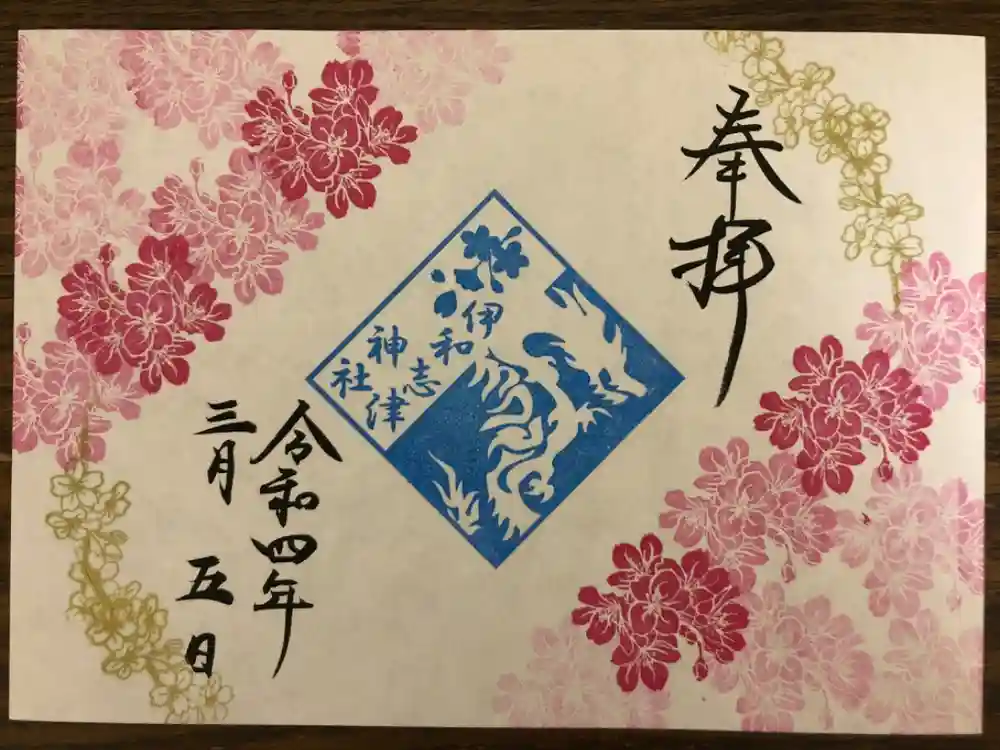 奉拝
伊和
志
神津
社
令和四年
三月 五日